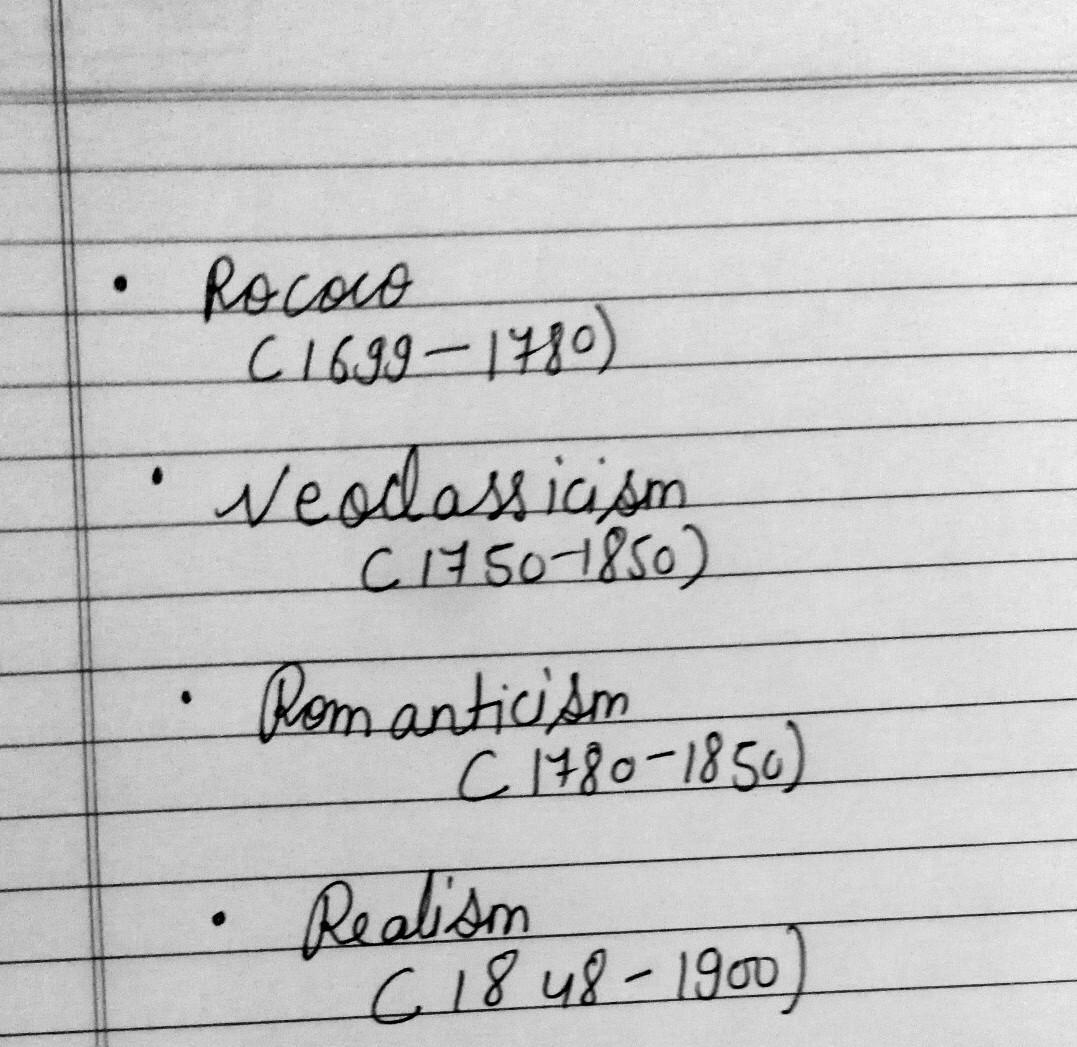 • Rococo
(1699-1780)
• Neoclassicism
(1750-1850)
• Romanticism
(1780-1850)
• Realism
(1848-1900)